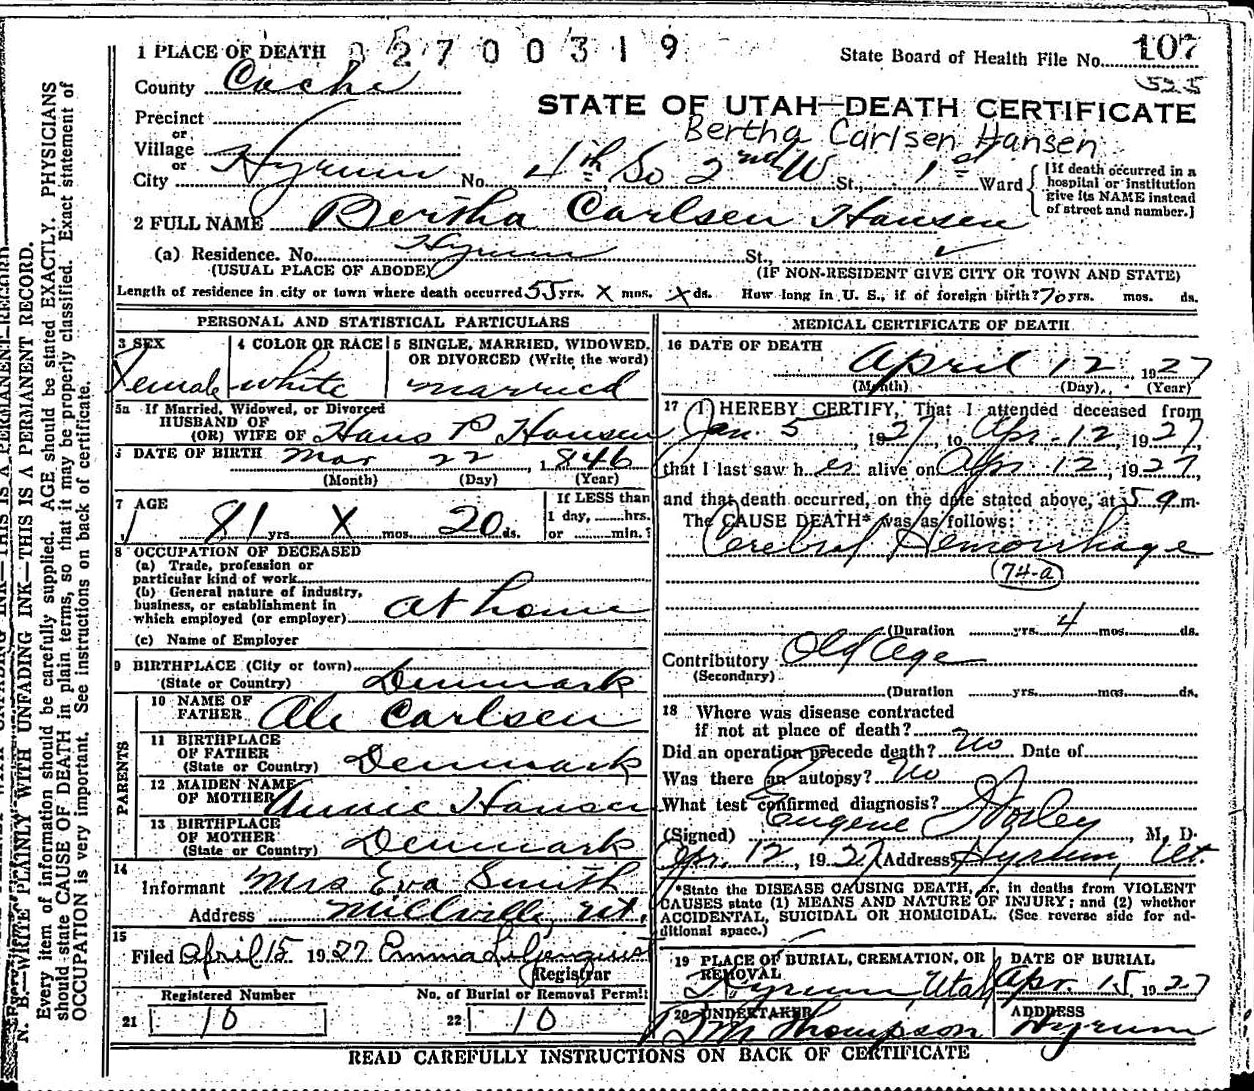 1 PLACE OF DEATH 2700319 State Board of Health File No. 107
County Cache 525
STATE OF UTAH—DEATH CERTIFICATE
Precinct
or
Village
or
Bertha Carlsen Hansen
City Hyrum No. 4th So 2nd W St., 1st Ward
[If death occurred in a
hospital or institution
give its NAME instead
of street and number.]
2 FULL NAME Bertha Carlsen Hansen
(a) Residence. No. Hyrum St.,
(USUAL PLACE OF ABODE) (IF NON-RESIDENT GIVE CITY OR TOWN AND STATE)
Length of residence in city or town where death occurred 55 yrs. X mos. X ds. How long in U. S., if of foreign birth? 70 yrs. mos. ds.
PERSONAL AND STATISTICAL PARTICULARS
3 SEX 4 COLOR OR RACE 5 SINGLE, MARRIED, WIDOWED,
OR DIVORCED (Write the word)
Female white married
5a If Married, Widowed, or Divorced
HUSBAND OF
(OR) WIFE OF Hans P Hansen
6 DATE OF BIRTH Mar 22 1846
(Month) (Day) (Year)
7 AGE If LESS than
1 day, hrs.
81 yrs. X mos. 20 ds. or min.?
8 OCCUPATION OF DECEASED
(a) Trade, profession or
particular kind of work
(b) General nature of industry,
business, or establishment in
which employed (or employer) at home
(c) Name of Employer
9 BIRTHPLACE (City or town)
(State or Country) Denmark
PARENTS
10 NAME OF
FATHER Ole Carlsen
11 BIRTHPLACE
OF FATHER
(State or Country) Denmark
12 MAIDEN NAME
OF MOTHER Annie Hansen
13 BIRTHPLACE
OF MOTHER
(State or Country) Denmark
14
Informant Mrs Eva Smith
Address Millville, Ut.
15
Filed April 15 1927 Emma Liljenquist
Registrar
Registered Number No. of Burial or Removal Permit
21 10 22 10
MEDICAL CERTIFICATE OF DEATH
16 DATE OF DEATH
April 12 1927
(Month) (Day) (Year)
17 I HEREBY CERTIFY, That I attended deceased from
Jan. 5, 1927, to Apr. 12 1927
that I last saw her alive on Apr. 12, 1927,
and that death occurred, on the date stated above, at 5 a m.
The CAUSE DEATH* was as follows:
Cerebral Hemorrhage
74-a
(Duration yrs. 4 mos. ds.
Contributory Old Age
(Secondary)
(Duration yrs. mos. ds.
18 Where was disease contracted
if not at place of death?
Did an operation precede death? No Date of
Was there an autopsy? No
What test confirmed diagnosis?
(Signed) Eugene Worley, M. D.
Apr. 12, 1927 (Address) Hyrum, Ut.
*State the DISEASE CAUSING DEATH, or, in deaths from VIOLENT
CAUSES state (1) MEANS AND NATURE OF INJURY; and (2) whether
ACCIDENTAL, SUICIDAL OR HOMICIDAL. (See reverse side for ad-
ditional space.)
19 PLACE OF BURIAL, CREMATION, OR
REMOVAL DATE OF BURIAL
Hyrum, Utah Apr. 15, 1927
20 UNDERTAKER ADDRESS
Thompson Hyrum
READ CAREFULLY INSTRUCTIONS ON BACK OF CERTIFICATE
N. B.—WRITE PLAINLY WITH UNFADING INK—THIS IS A PERMANENT RECORD.
Every item of information should be carefully supplied. AGE should be stated EXACTLY. PHYSICIANS
should state CAUSE OF DEATH in plain terms, so that it may be properly classified. Exact statement of
OCCUPATION is very important. See instructions on back of certificate.